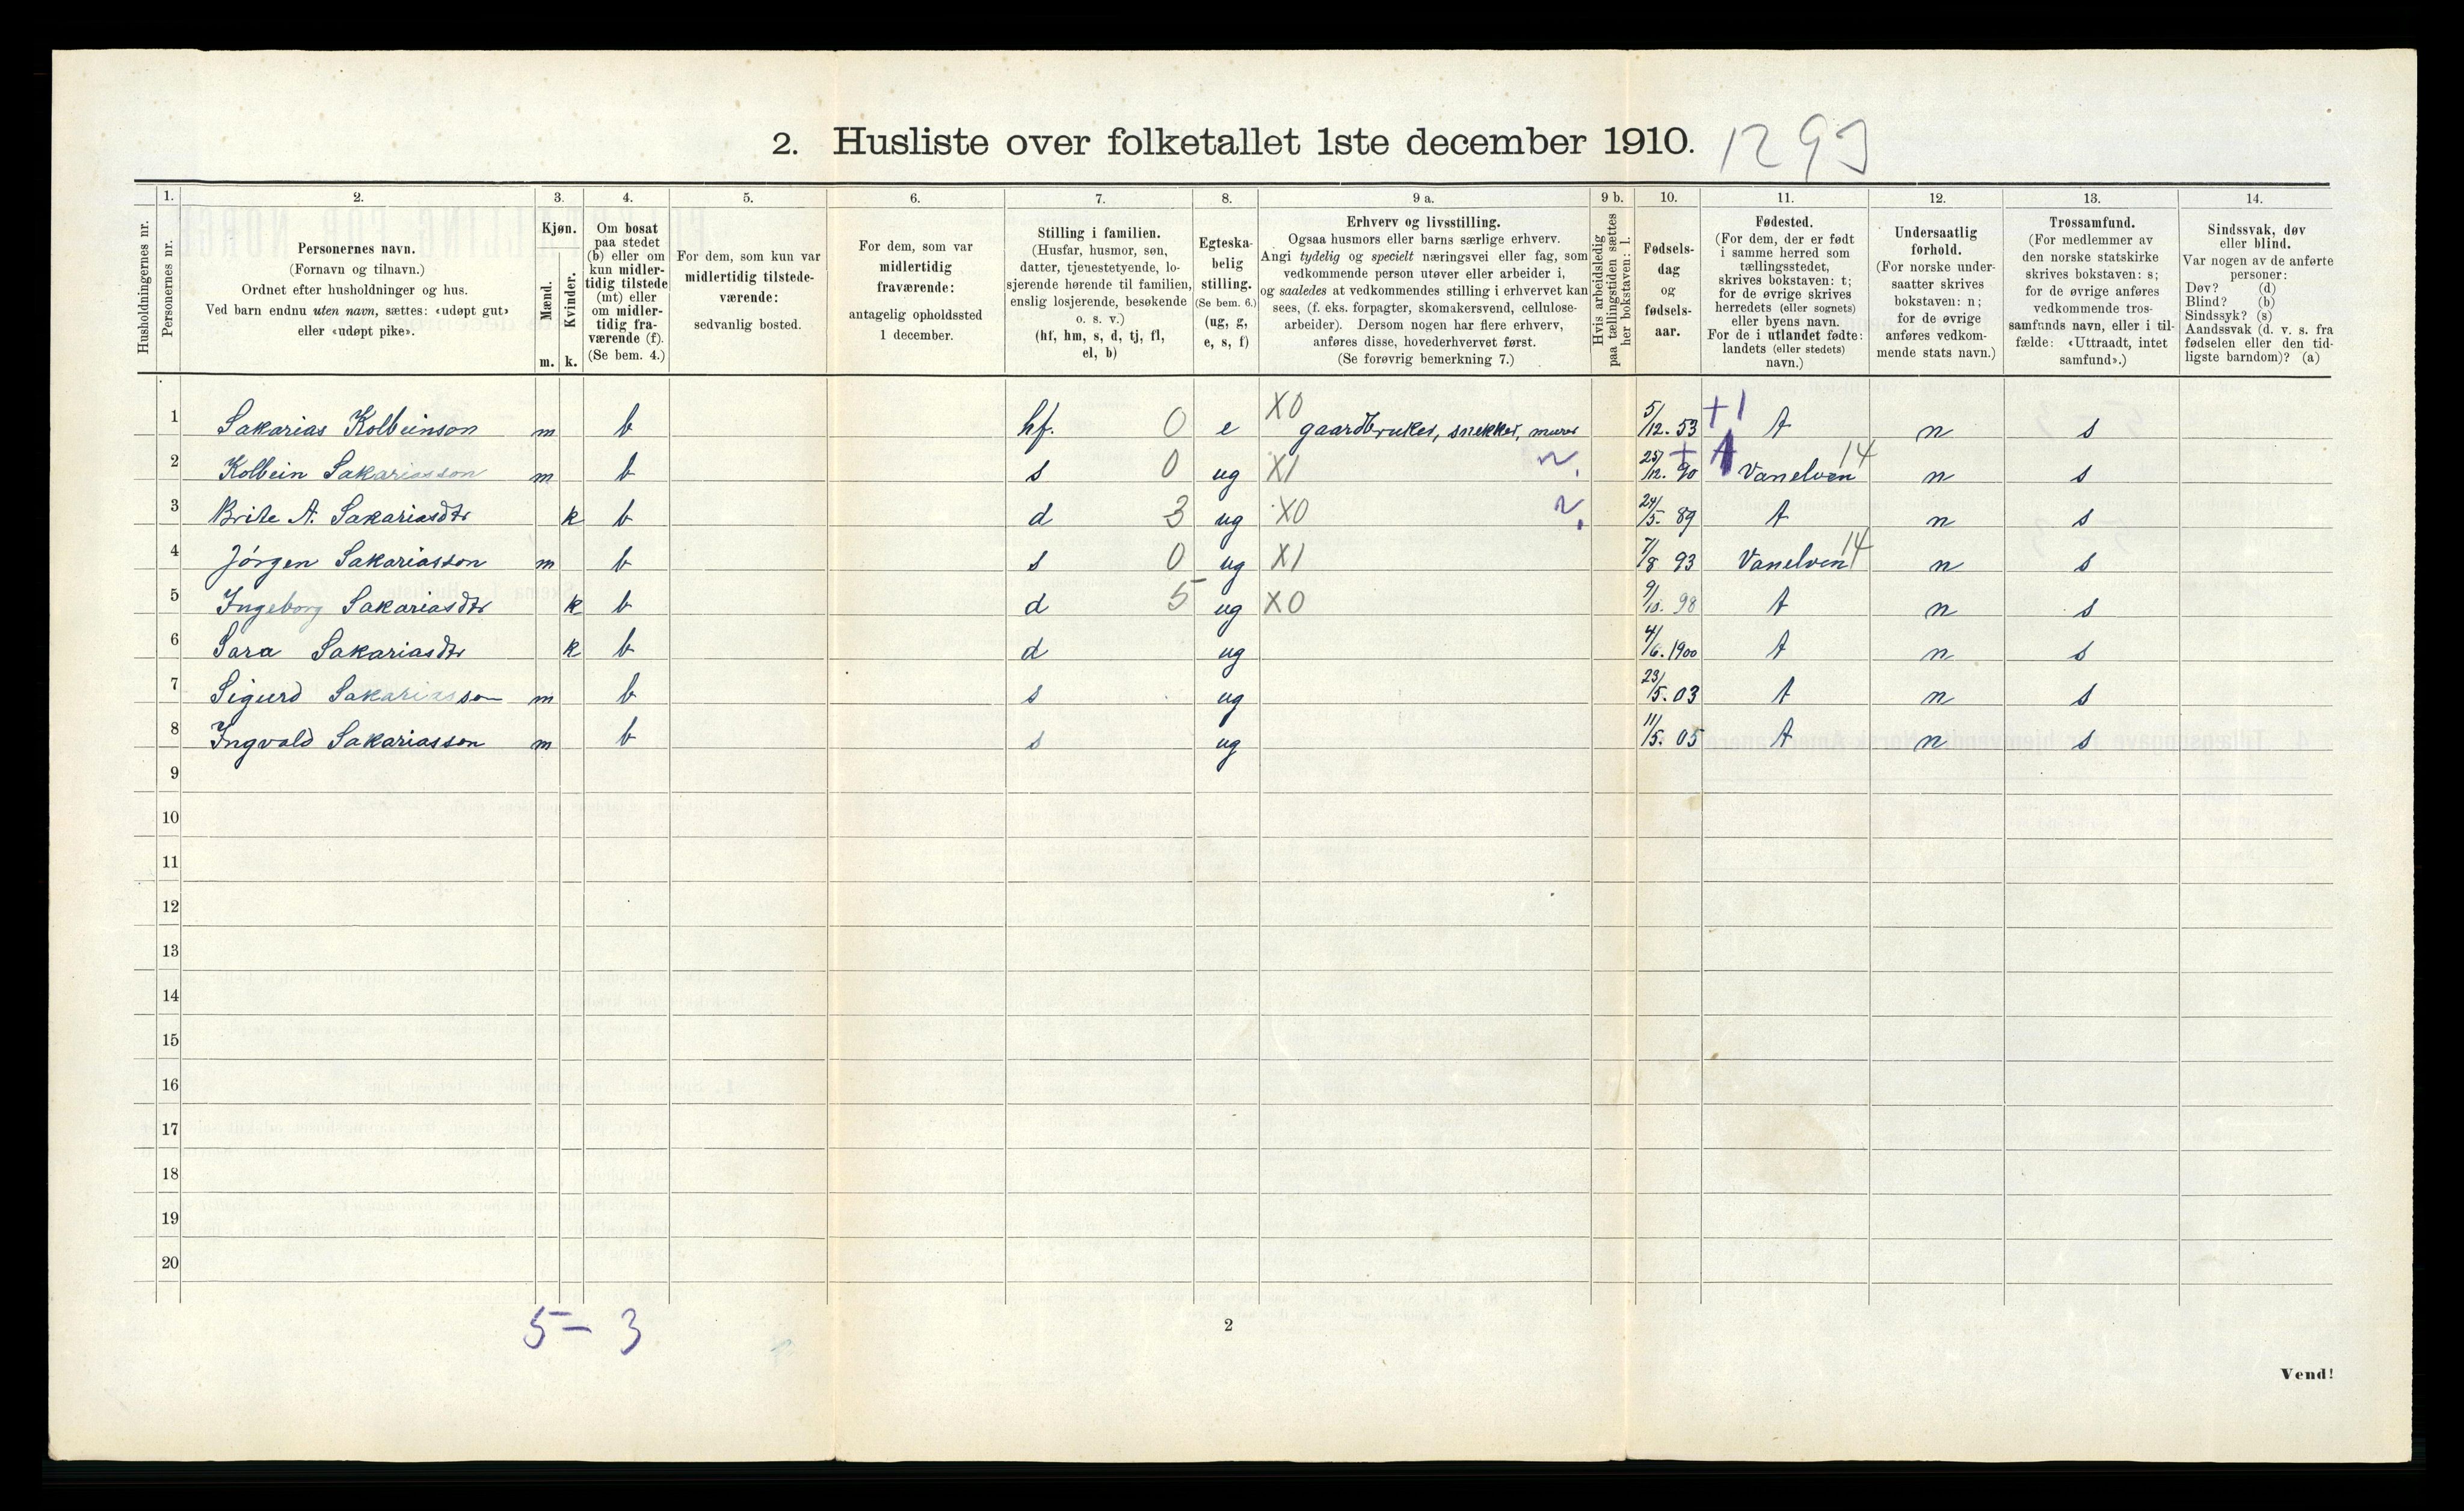 2. Husliste over folketallet 1ste december 1910. 1293
Husholdningernes nr.
1.
Personernes nr.
2.
Personernes navn.
(Fornavn og tilnavn.)
Ordnet efter husholdninger og hus.
Ved barn endnu uten navn, sættes: «udøpt gut»
eller «udøpt pike».
3.
Kjøn.
Mænd.
Kvinder.
m. k.
4.
Om bosat
paa stedet
(b) eller om
kun midler-
tidig tilstede
(mt) eller
om midler-
tidig fra-
værende (f).
(Se bem. 4.)
5.
For dem, som kun var
midlertidig tilstede-
værende:
sedvanlig bosted.
6.
For dem, som var
midlertidig
fraværende:
antagelig opholdssted
1 december.
7.
Stilling i familien.
(Husfar, husmor, søn,
datter, tjenestetyende, lo-
sjerende hørende til familien,
enslig losjerende, besøkende
o. s. v.)
(hf, hm, s, d, tj, fl,
el, b)
8.
Egteska-
belig
stilling.
(Se bem. 6.)
(ug, g,
e, s, f)
9 a.
Erhverv og livsstilling.
Ogsaa husmors eller barns særlige erhverv.
Angi tydelig og specielt næringsvei eller fag, som
vedkommende person utøver eller arbeider i,
og saaledes at vedkommendes stilling i erhvervet kan
sees, (f. eks. forpagter, skomakersvend, cellulose-
arbeider). Dersom nogen har flere erhverv,
anføres disse, hovederhvervet først.
(Se forøvrig bemerkning 7.)
9 b.
Hvis arbeidsledig
paa tællingstiden sættes
her bokstaven: l.
10.
Fødsels-
dag
og
fødsels-
aar.
11.
Fødested.
(For dem, der er født
i samme herred som
tællingsstedet,
skrives bokstaven: t;
for de øvrige skrives
herredets (eller sognets)
eller byens navn.
For de i utlandet fødte:
landets (eller stedets)
navn.)
12.
Undersaatlig
forhold.
(For norske under-
saatter skrives
bokstaven: n;
for de øvrige
anføres vedkom-
mende stats navn.)
13.
Trossamfund.
(For medlemmer av
den norske statskirke
skrives bokstaven: s;
for de øvrige anføres
vedkommende tros-
samfunds navn, eller i til-
fælde: «Uttraadt, intet
samfund».)
14.
Sindssvak, døv
eller blind.
Var nogen av de anførte
personer:
Døv? (d)
Blind? (b)
Sindssyk? (s)
Aandssvak (d. v. s. fra
fødselen eller den tid-
ligste barndom)? (a)
1 Sakarias Kolbeinson m b hf. 0 e X0 gaardbruker, snekker, murer 5/12. 53 +1 t n s
2 Kolbein Sakariasson m b s 0 ug X1 25/12. 90 Vanelven 14 n s
3 Brite A. Sakariasdtr k b d 3 ug X0 24/5. 89 t n s
4 Jörgen Sakariasson m b s 0 ug X1 7/8 93 Vanelven 14 n s
5 Ingeborg Sakariasdtr k b d 5 ug X0 9/10. 98 t n s
6 Sara Sakariasdtr k b d ug 4/6. 1900 t n s
7 Sigurd Sakariasson m b s ug 23/5. 03 t n s
8 Ingvald Sakariasson m b s ug 11/5. 05 t n s
9
10
11
12
13
14
15
16
17
18
19
20
5 - 3
2
Vend!